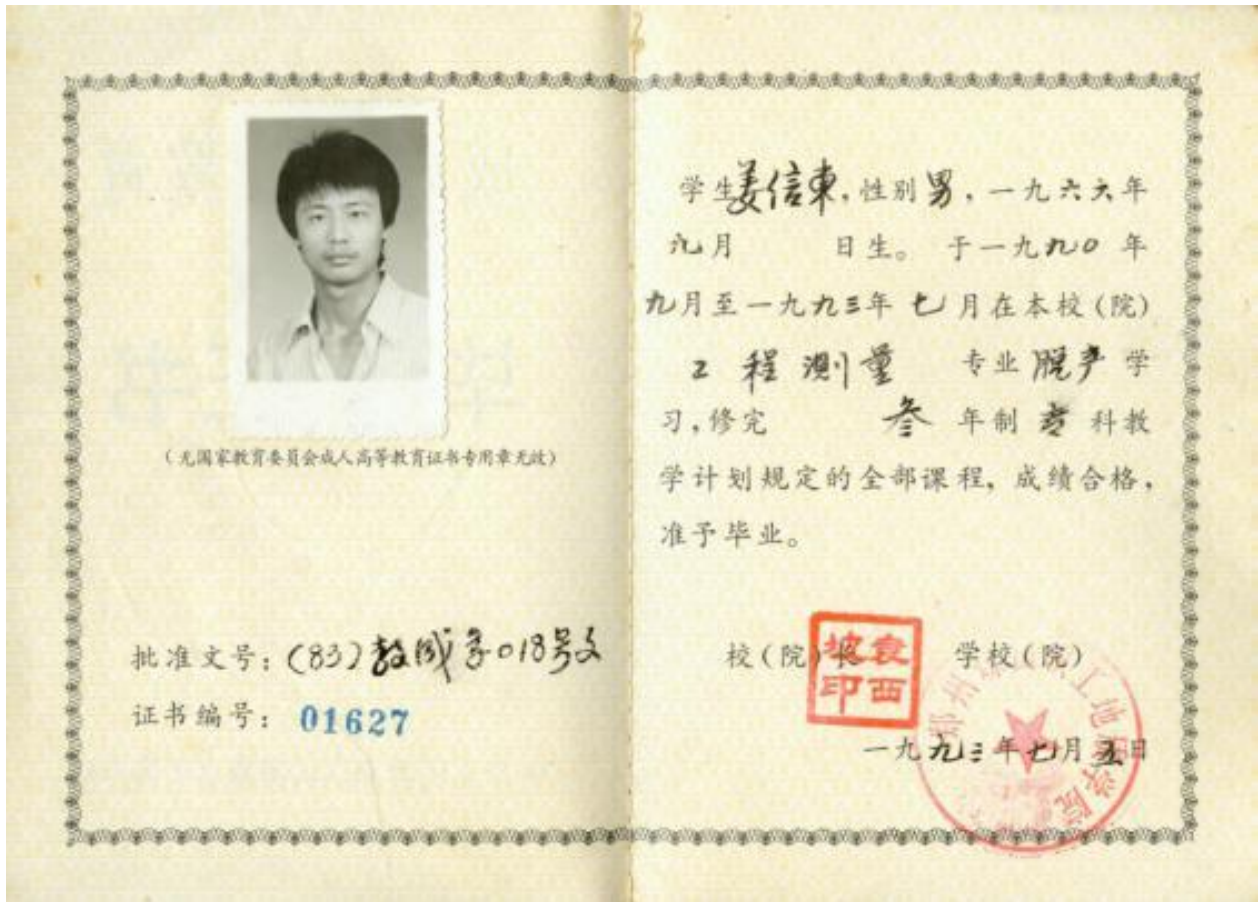 (无国家教育委员会成人高等教育证书专用章无效)
批准文号：(83)教成字018号文
证书编号：01627
学生姜信東，性别男，一九六六年
九月 日生。于一九九〇年
九月至一九九三年七月在本校(院)
工程测量 专业脱产学
习，修完 叁年制专科教
学计划规定的全部课程，成绩合格，
准予毕业。
校(院)长 学校(院)
袁西坡印
一九九三年七月五日